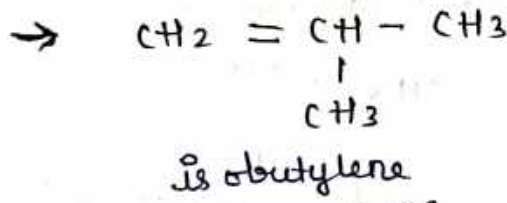 → CH2 = CH - CH3
|
CH3
isobutylene